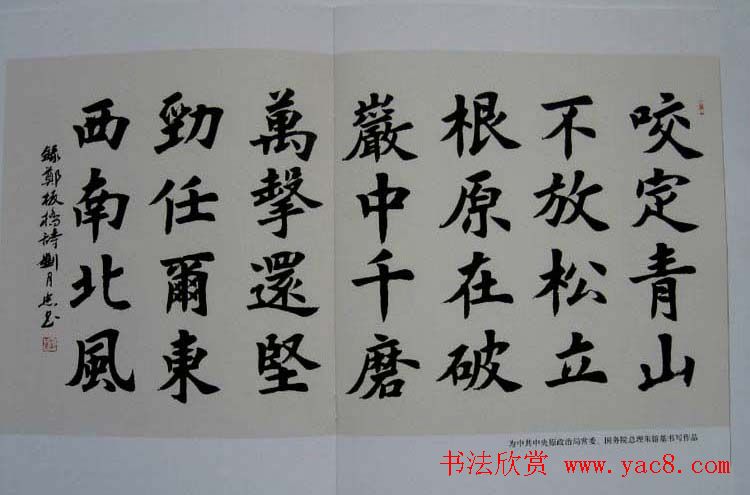 咬定青山
不放松立
根原在破
巖中千磨
萬擊還堅
勁任爾東
西南北風
錄鄭板橋詩劉月忠書
为中共中央原政治局常委、国务院总理朱镕基书写作品
书法欣赏 www.yac8.com